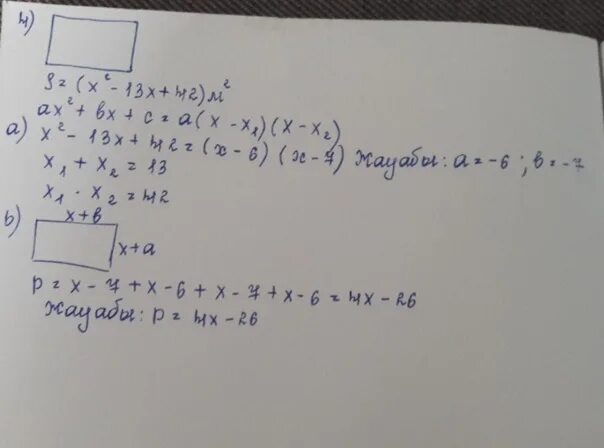 4)
S = (x² - 13x + 42) м²
ax² + bx + c = a (x - x₁) (x - x₂)
a) x² - 13x + 42 = (x - 6) (x - 7) Жауабы: a = -6 ; b = -7
x₁ + x₂ = 13
x₁ · x₂ = 42
b) x + b
x + a
P = x - 7 + x - 6 + x - 7 + x - 6 = 4x - 26
Жауабы: P = 4x - 26